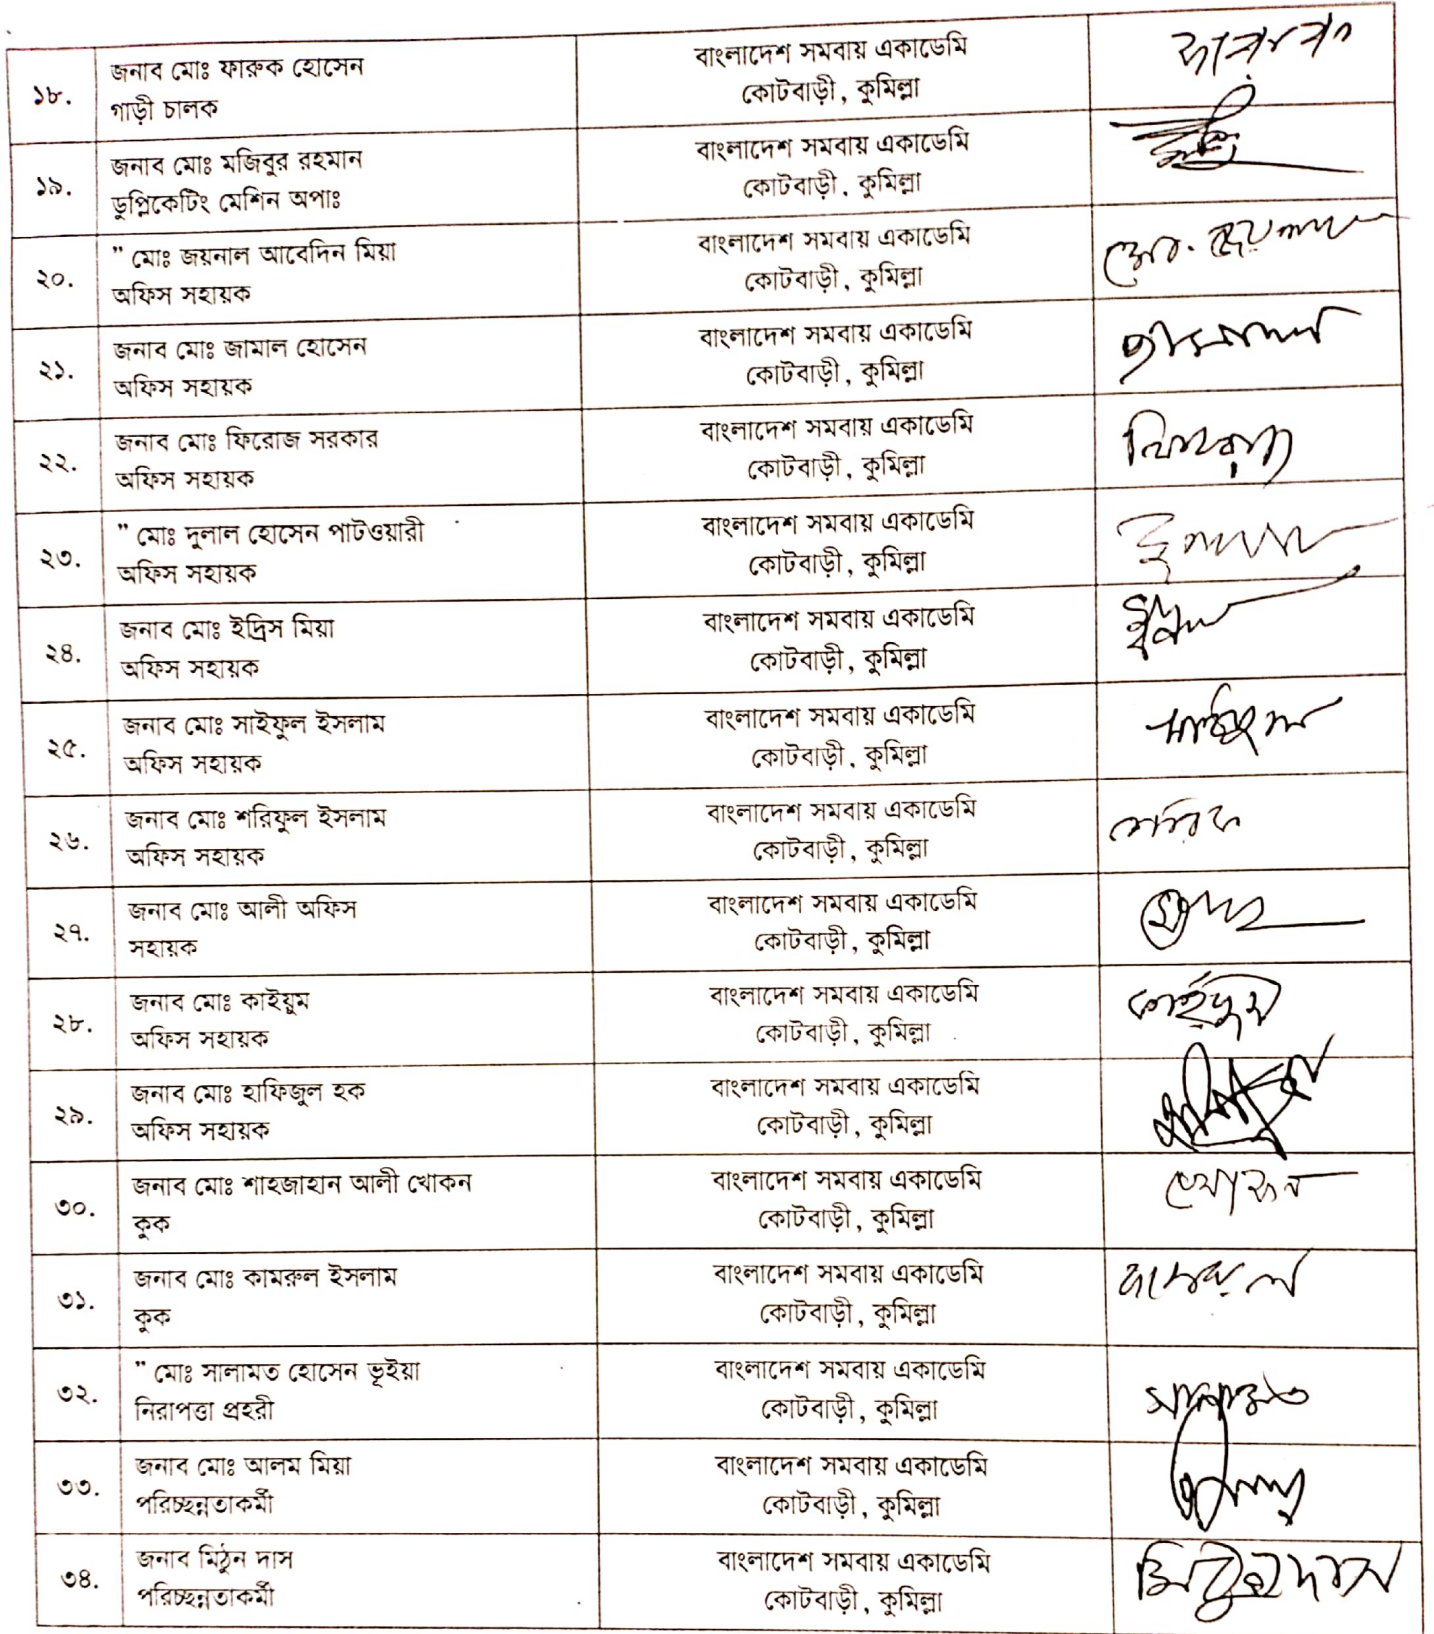 ১৮.
জনাব মোঃ ফারুক হোসেন
গাড়ী চালক
বাংলাদেশ সমবায় একাডেমি
কোটবাড়ী, কুমিল্লা
১৯.
জনাব মোঃ মজিবুর রহমান
ডুপ্লিকেটিং মেশিন অপাঃ
বাংলাদেশ সমবায় একাডেমি
কোটবাড়ী, কুমিল্লা
২০.
” মোঃ জয়নাল আবেদিন মিয়া
অফিস সহায়ক
বাংলাদেশ সমবায় একাডেমি
কোটবাড়ী, কুমিল্লা
২১.
জনাব মোঃ জামাল হোসেন
অফিস সহায়ক
বাংলাদেশ সমবায় একাডেমি
কোটবাড়ী, কুমিল্লা
২২.
জনাব মোঃ ফিরোজ সরকার
অফিস সহায়ক
বাংলাদেশ সমবায় একাডেমি
কোটবাড়ী, কুমিল্লা
২৩.
” মোঃ দুলাল হোসেন পাটওয়ারী
অফিস সহায়ক
বাংলাদেশ সমবায় একাডেমি
কোটবাড়ী, কুমিল্লা
২৪.
জনাব মোঃ ইদ্রিস মিয়া
অফিস সহায়ক
বাংলাদেশ সমবায় একাডেমি
কোটবাড়ী, কুমিল্লা
২৫.
জনাব মোঃ সাইফুল ইসলাম
অফিস সহায়ক
বাংলাদেশ সমবায় একাডেমি
কোটবাড়ী, কুমিল্লা
২৬.
জনাব মোঃ শরিফুল ইসলাম
অফিস সহায়ক
বাংলাদেশ সমবায় একাডেমি
কোটবাড়ী, কুমিল্লা
শরিফ
২৭.
জনাব মোঃ আলী অফিস
সহায়ক
বাংলাদেশ সমবায় একাডেমি
কোটবাড়ী, কুমিল্লা
২৮.
জনাব মোঃ কাইয়ুম
অফিস সহায়ক
বাংলাদেশ সমবায় একাডেমি
কোটবাড়ী, কুমিল্লা
কাইয়ুম
২৯.
জনাব মোঃ হাফিজুল হক
অফিস সহায়ক
বাংলাদেশ সমবায় একাডেমি
কোটবাড়ী, কুমিল্লা
৩০.
জনাব মোঃ শাহজাহান আলী খোকন
কুক
বাংলাদেশ সমবায় একাডেমি
কোটবাড়ী, কুমিল্লা
খোকন
৩১.
জনাব মোঃ কামরুল ইসলাম
কুক
বাংলাদেশ সমবায় একাডেমি
কোটবাড়ী, কুমিল্লা
কামরুল
৩২.
” মোঃ সালামত হোসেন ভূইয়া
নিরাপত্তা প্রহরী
বাংলাদেশ সমবায় একাডেমি
কোটবাড়ী, কুমিল্লা
সালামত
৩৩.
জনাব মোঃ আলম মিয়া
পরিচ্ছন্নতাকর্মী
বাংলাদেশ সমবায় একাডেমি
কোটবাড়ী, কুমিল্লা
৩৪.
জনাব মিঠুন দাস
পরিচ্ছন্নতাকর্মী
বাংলাদেশ সমবায় একাডেমি
কোটবাড়ী, কুমিল্লা
মিঠুন দাস